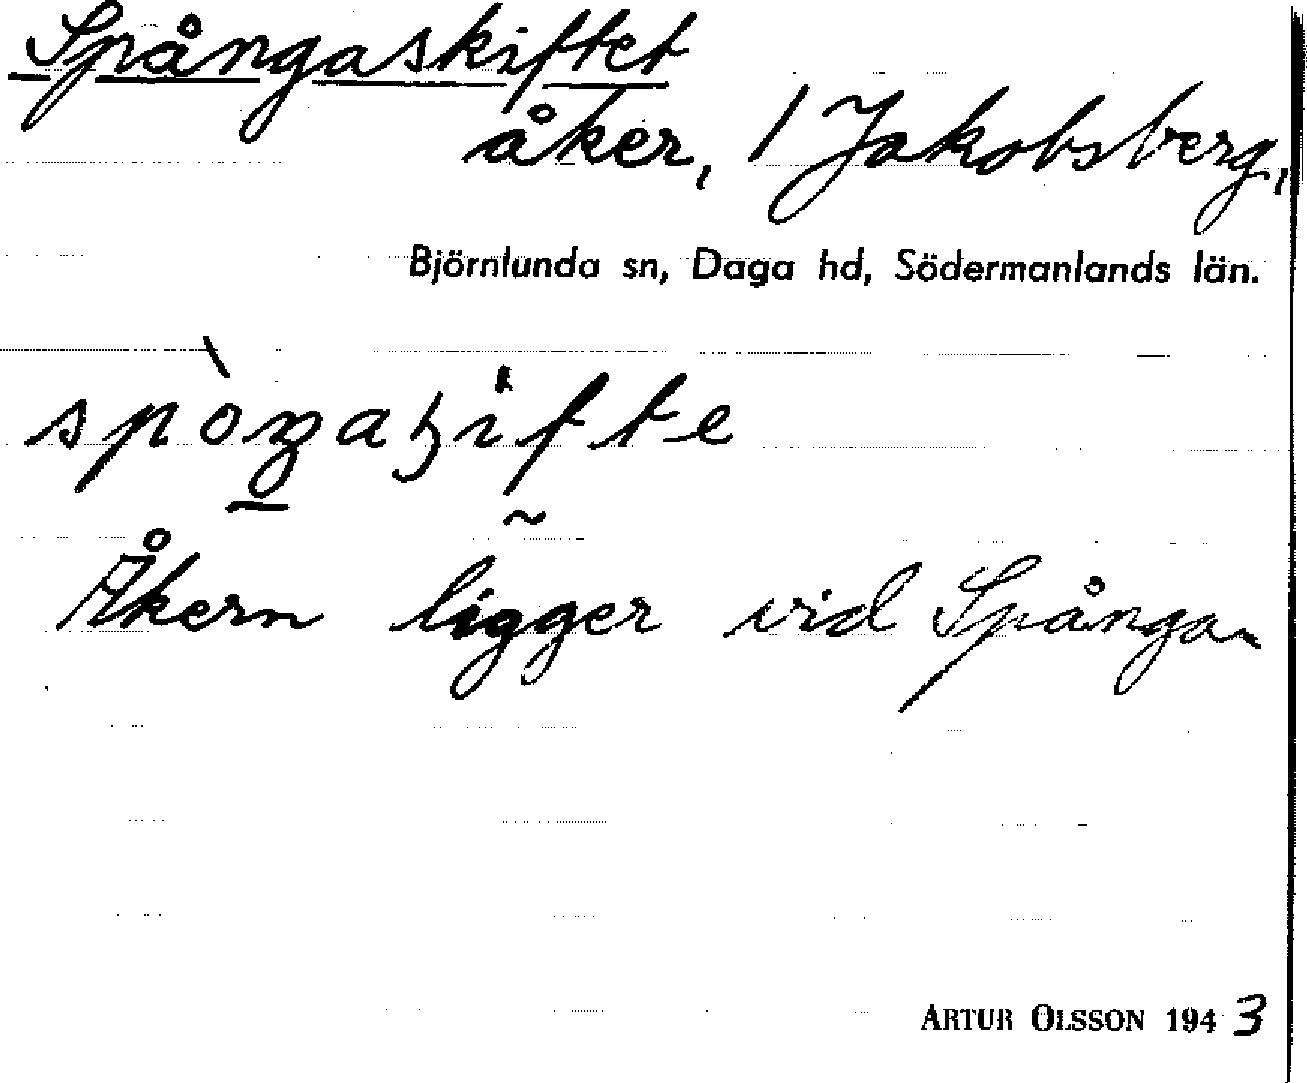 Spångaskiftet
åker, / Jakobsberg,
Björnlunda sn, Daga hd, Södermanlands län.
Åkern ligger vid Spångan
ARTUR OLSSON 1943